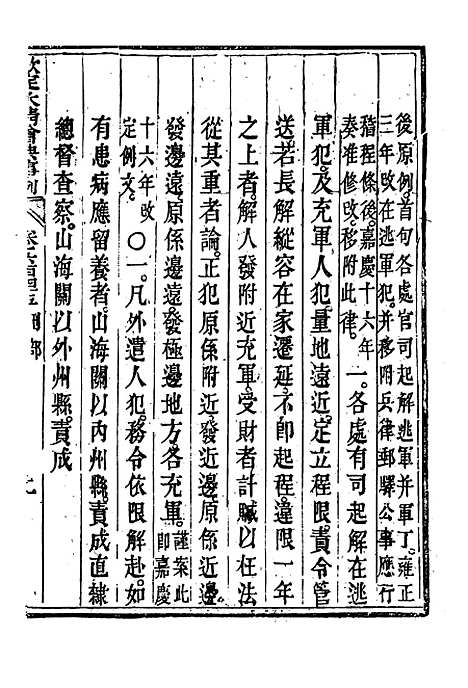 後原例首句各處官司起解逃軍并軍丁。雍正
三年改在逃軍犯。并移附兵律郵驛公事應行
稽程條後。嘉慶十六年
奏准修改。移附此律。
一。各處有司起解在逃
軍犯。及充軍人犯。量地遠近。定立程限。責令管
送。若長解縱容在家遷延。不即起程。違限一年
之上者。解人發附近充軍。受財者計贓以枉法
從其重者論。正犯原係附近發近邊。原係近邊
發邊遠。原係邊遠。發極邊地方各充軍。
謹案此
即嘉慶
十六年改
定例文。
○一。凡外遣人犯。務令依限解赴。如
有患病應留養者。山海關以內州縣。責成直隸
總督查察。山海關以外州縣。責成
欽定大清會典事例
刑部
九